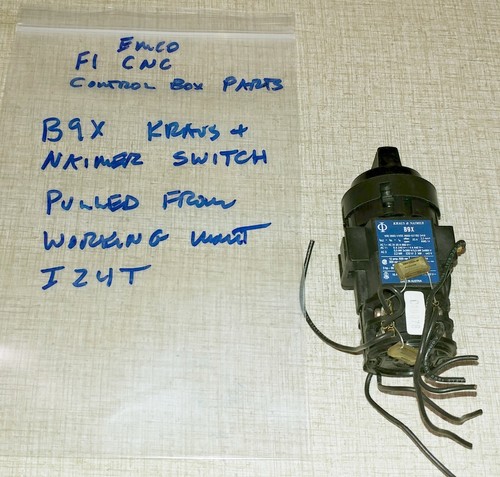 EMCO
F1 CNC
CONTROL BOX PARTS
B9X KRAUS +
NAIMER SWITCH
PULLED FROM
WORKING UNIT
IZ4T
KRAUS & NAIMER
B9X